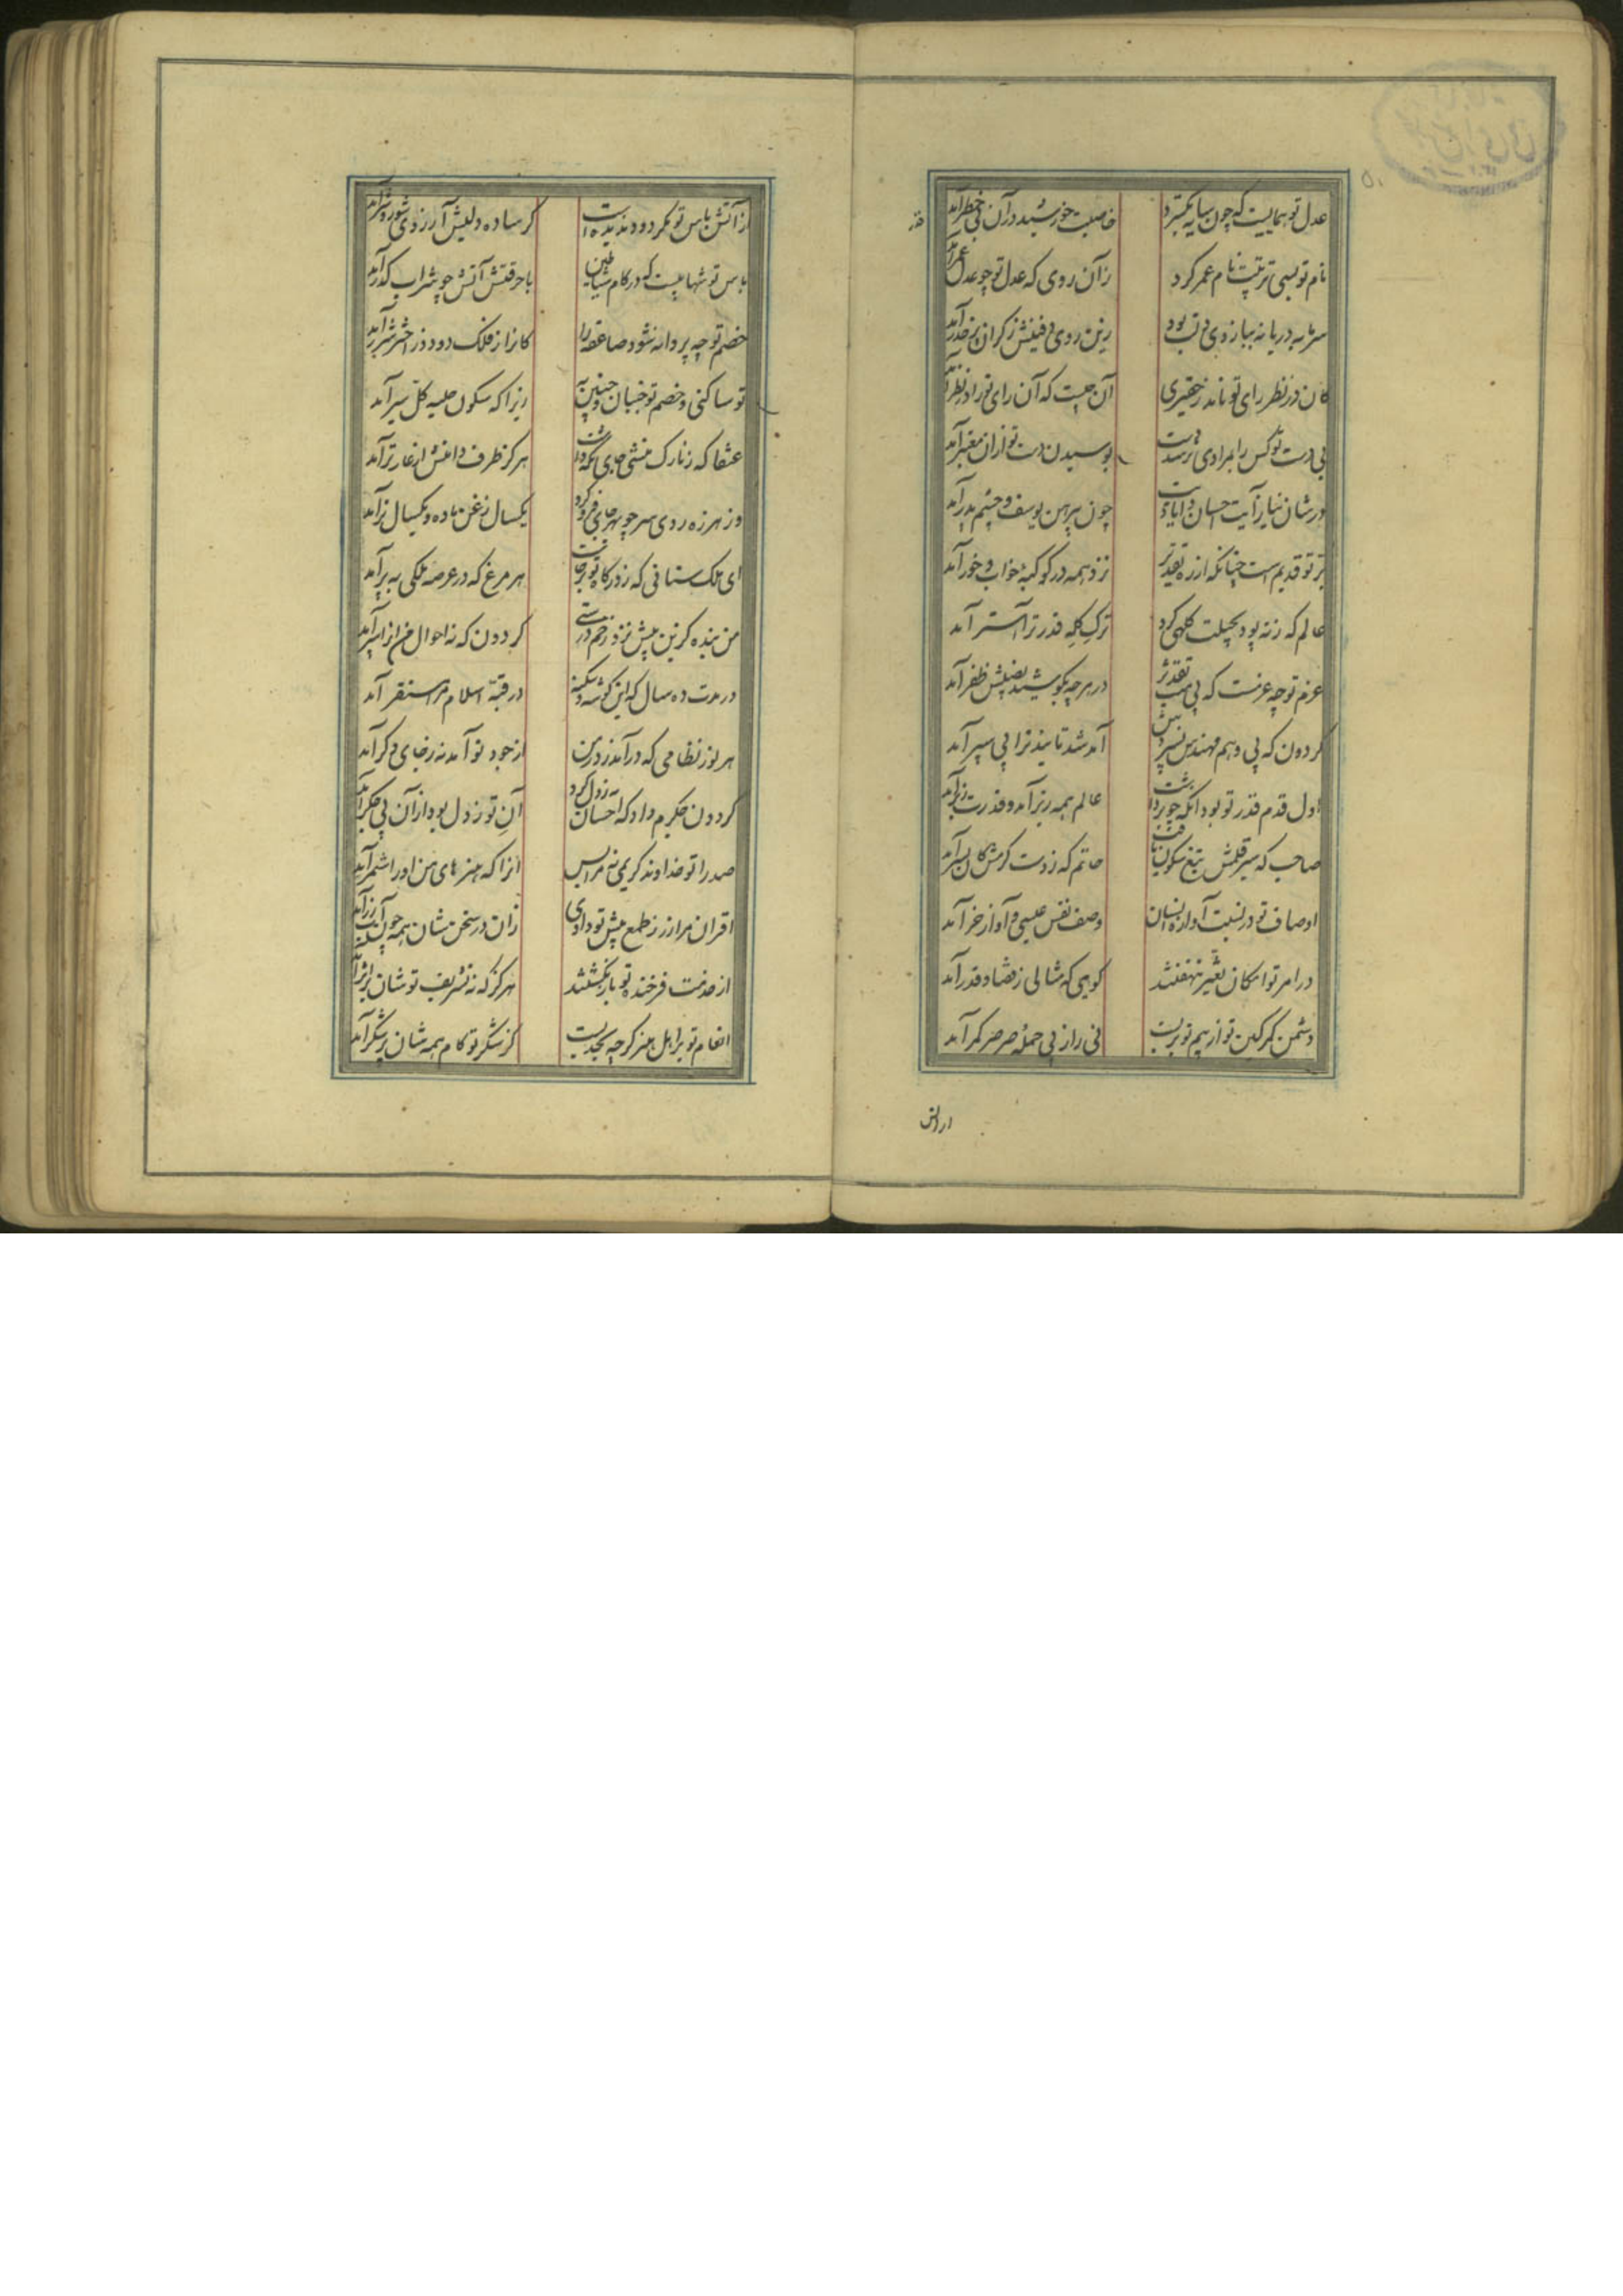 عدل تو همایست که چون سایه بگسترد
خاصیت خورشید در آن بی خطر آمد
نام تو بسی تربیت نام عمر کرد
زآن روی که عدل تو چو عدل عمر آمد
زین روی دفینش ز کران پر خدر آمد
کان در نظر رای تو ناید ز حقیری
آن چیست که آن رای تو را در نظر آمد
بی دست تو کس را بمرادی نرسد دست
بوسیدن دست تو از آن معتبر آمد
در شان نیاز آیت احسان و ایادیت
چون پیرهن یوسف و چشم پدر آمد
تو قدیم است چنانکه از ره تقدیر
نزد همه در کوکبه خواب و خور آمد
عالم که نه بود بچهلت کلهی کرد
ترک کله قدر ترا آستر آمد
عزم تو چه عزمست که بی تقدیر
در هر چه بکوشید بفضلش ظفر آمد
گردون که پی وهم مهندس نسپردیش
آمد شد تایید ترا پی سپر آمد
اول قدم قدر تو بود آنکه چو برداشت
عالم همه زیر آمد و قدرت زبر آمد
صاحب که سر قلمش تیغ سکون یافت
حاتم که ز دست کرمش کان بسر آمد
اوصاف تو در نسبت آوازه ایشان
وصف نفس عیسی و آواز خر آمد
در امر تو امکان تغیر ننهفتند
گویی که مثالی ز قضا و قدر آمد
دشمن کمر کین تو از بیم تو بربست
نی را ز پی حمله صرصر کمر آمد
از آتش
از آتش باس تو مگر دود ندیده است
گر ساده دلیش آرزوی شور و شر آمد
باس تو شهابیست که در کام شیاطین
با حرقتش آتش چو شراب کدر آمد
خصم تو چه پروانه شود صاعقه را
کانرا ز فلک دود و ز اختر شرر آمد
تو ساکنی و خصم تو جنبان و چنین به
زیرا که سکون حلیه کل سیر آمد
عنقا که ز نازک منشی جای نگه داشت
هرگز طرف دامنش از عار تر آمد
وز هرزه روی سر چو بهر جای فرو کرد
یکسال زغن ماده و یکسال نر آمد
ای ملک ستانی که ز درگاه تو برخاست
هر مرغ که در عرصه ملکی به پر آمد
من بنده کزین پیش نزد زخم درستی
گردون که نه احوال من از اثر آمد
در مدت ده سال که این گوشه و سکنه
در قبه اسلام مرا مستقر آمد
هر نور نظامی که در آمد ز در من
از جود تو آمد نه ز جای دگر آمد
گردون جگرم داد که احسان تو نه زدل کرد
آن تو ز دل بود از آن بی جگر آمد
صدرا تو خداوند کریمی نه مرا بس
آنرا که هنرهای من او را شمر آمد
اقران مرا زر ز طمع پیش تو دادی
زآن در سخن شان همه چون آب زر آمد
از خدمت فرخنده تو باز نگشتند
هرگز که نه تشریف تو شان بر اثر آمد
انعام تو بر اهل هنر گرچه بحدیست
کز شکر تو کام همه شان پر شکر آمد